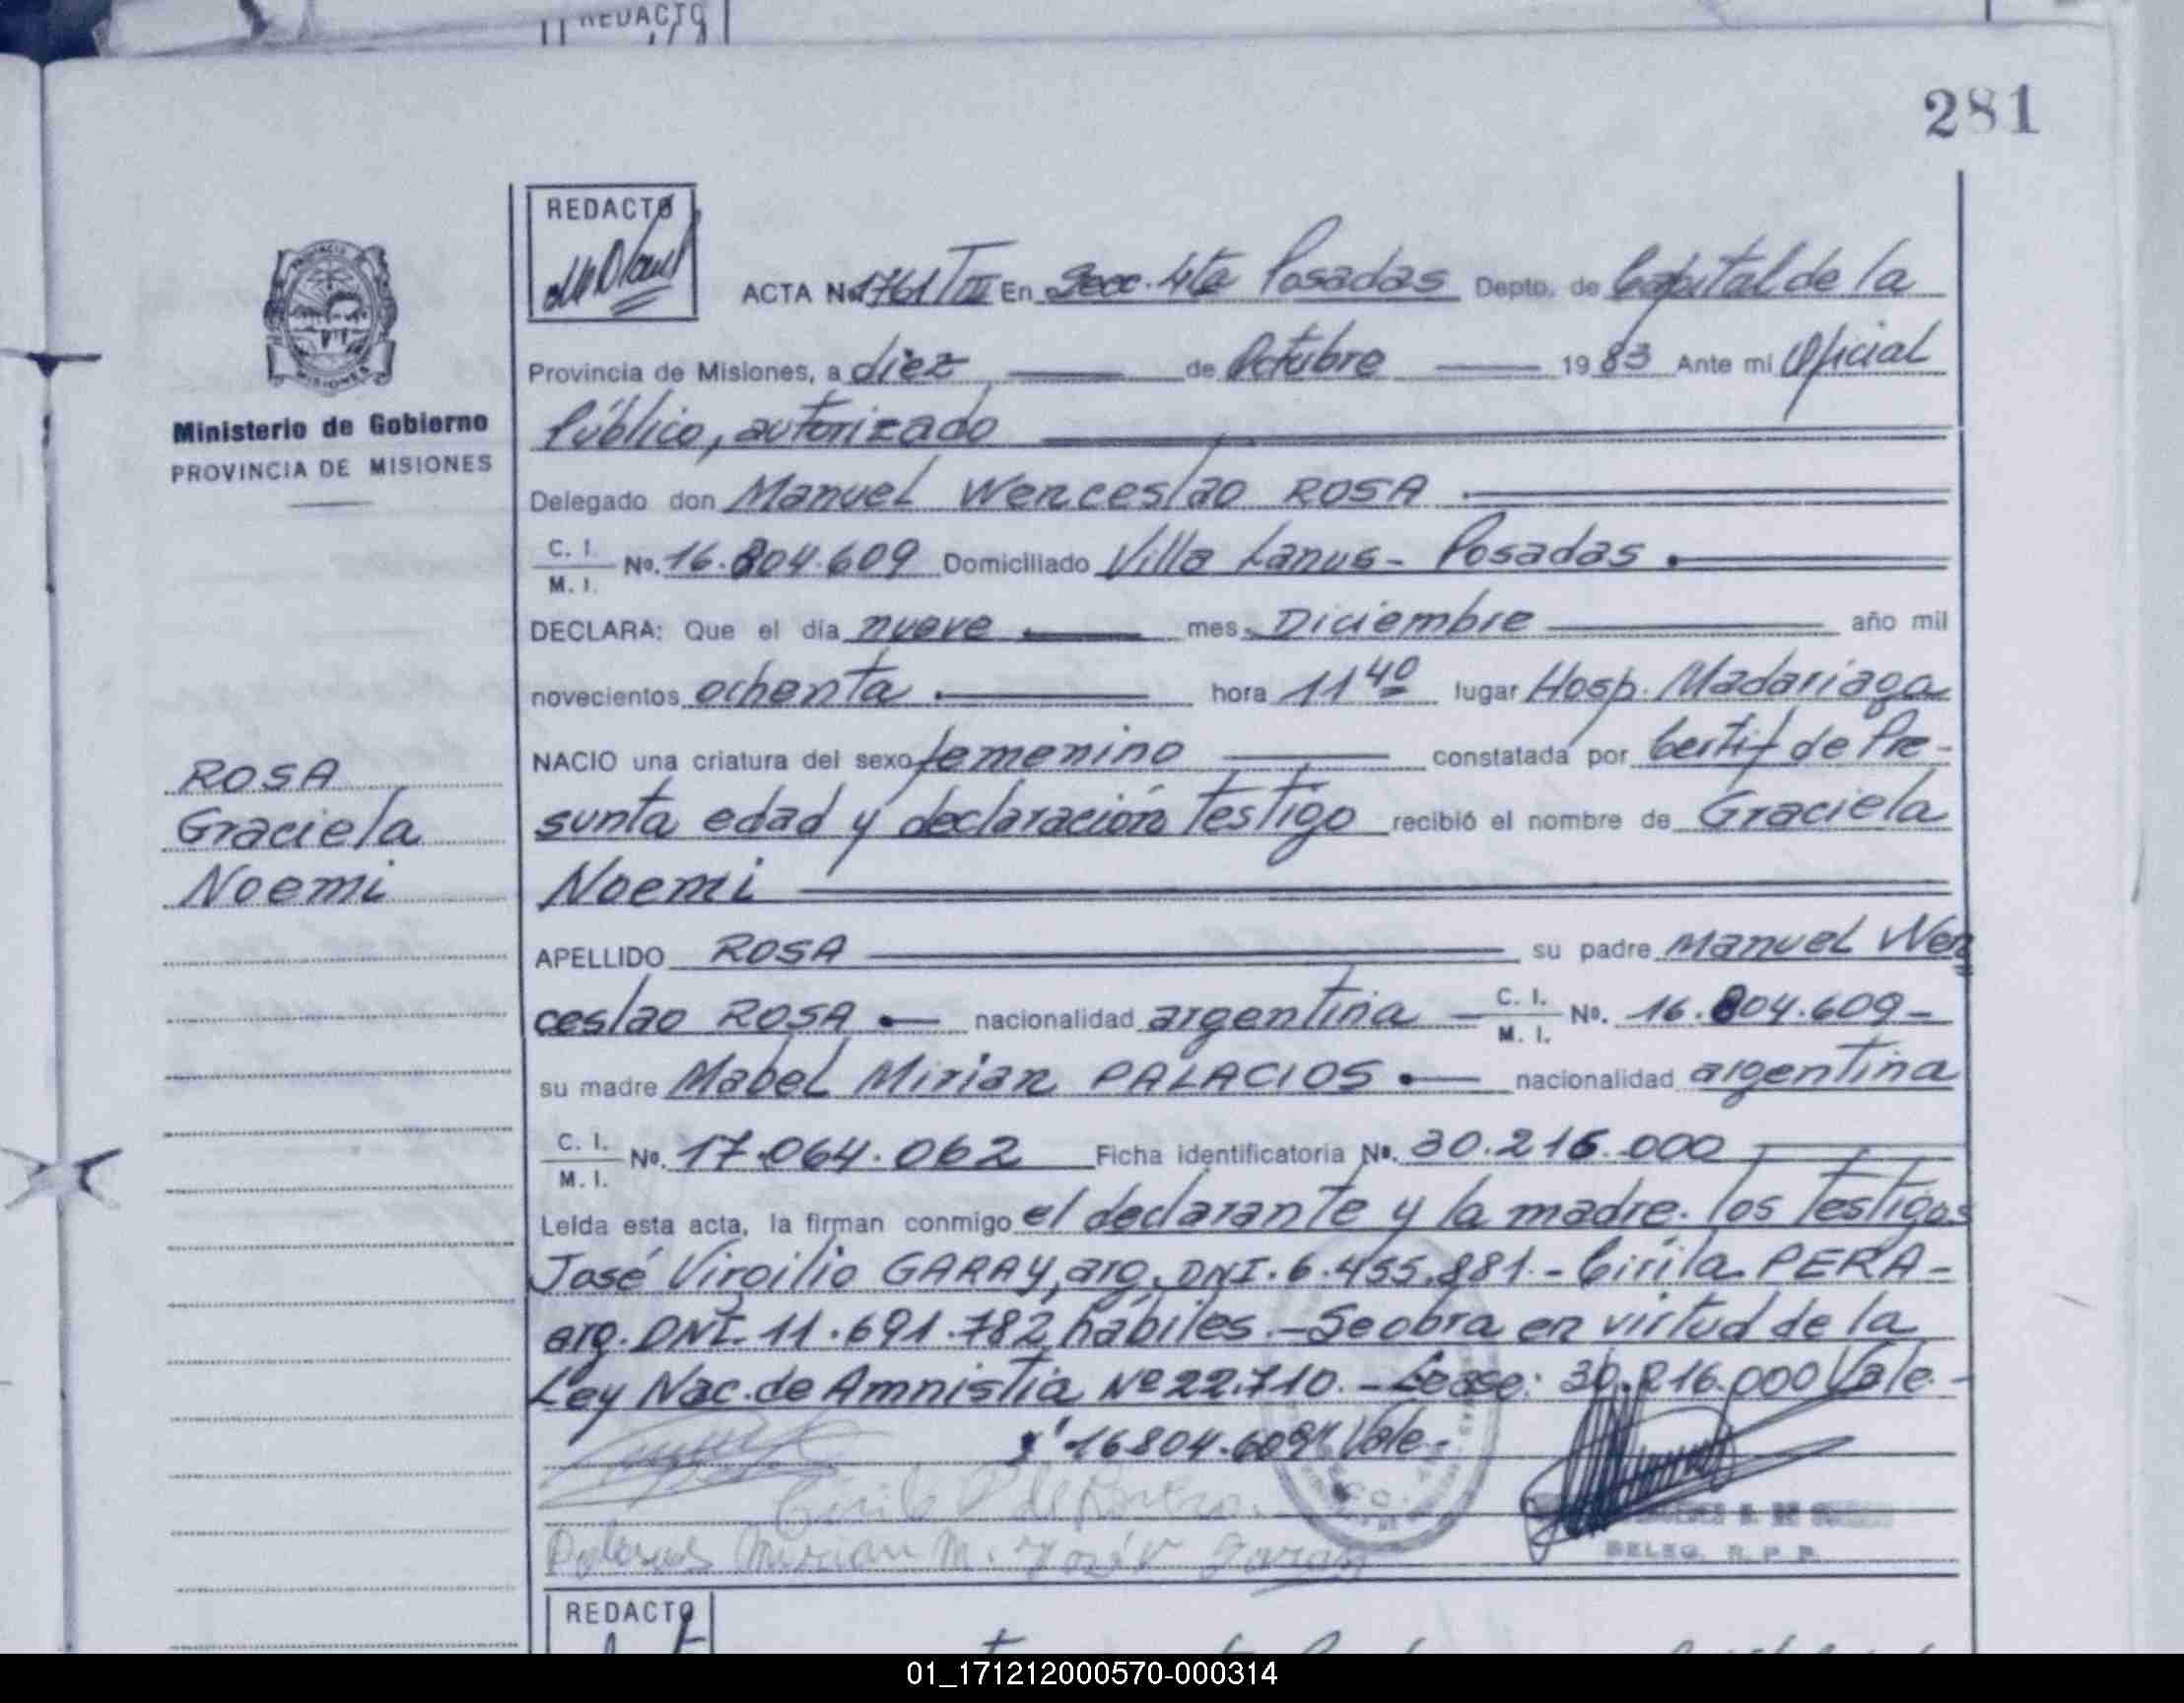 REDACTO
281
REDACTO
ACTA No 1761/III En Secc. 4ta Posadas Depto. de Capital de la
Provincia de Misiones, a diez de Octubre 1983 Ante mi Oficial
Público, autorizado
Ministerio de Gobierno
PROVINCIA DE MISIONES
Delegado don Manuel Wenceslao ROSA
C. I. M. I. No. 16.804.609 Domiciliado Villa Lanus - Posadas.
DECLARA: Que el día nueve mes Diciembre año mil
novecientos ochenta. hora 11 40 lugar Hosp. Madariaga
NACIO una criatura del sexo femenino constatada por Certif de Pre-
ROSA
Graciela
Noemi
sunta edad y declaración testigo recibió el nombre de Graciela
Noemi
APELLIDO ROSA su padre Manuel Wen
ceslao ROSA nacionalidad argentina C. I. M. I. No. 16.804.609-
su madre Mabel Mirian PALACIOS nacionalidad argentina
C. I. M. I. No. 17.064.062 Ficha identificatoria No. 30.216.000
Leída esta acta, la firman conmigo el declarante y la madre. los testigos
José Virgilio GARAY, arg. DNI. 6.455.881.- Cirila PERA-
arg. DNI. 11.691.782 hábiles.- Se obra en virtud de la
Ley Nac. de Amnistia Nº 22.710.- Lease: 30.216.000 Vale-
16804.609" Vale-
Mirian M. José V Garay
DELEG. R. P. P.
REDACTO
01_171212000570-000314